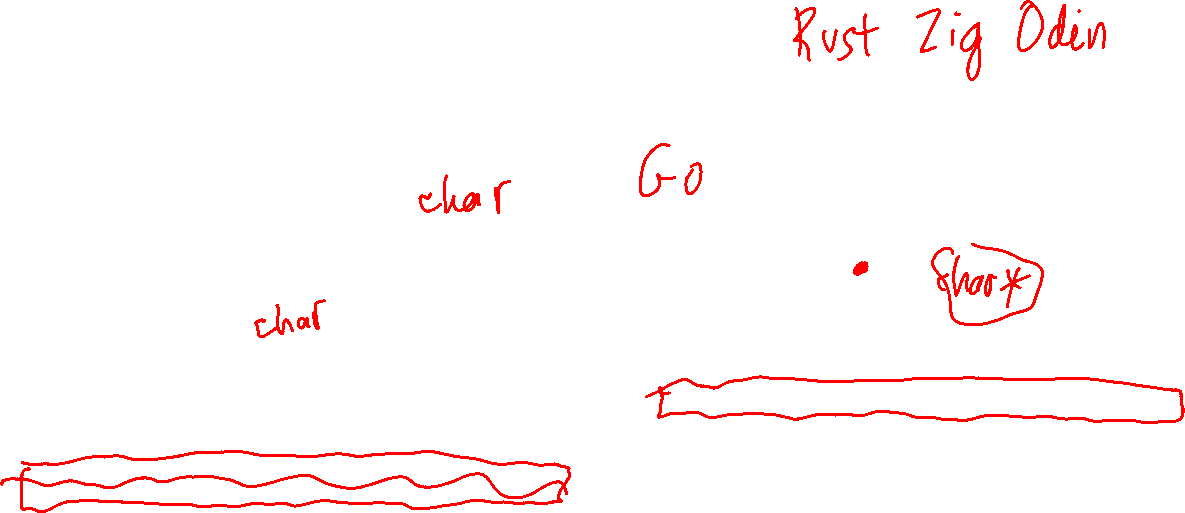 Rust Zig Odin
Go
char
char*
char